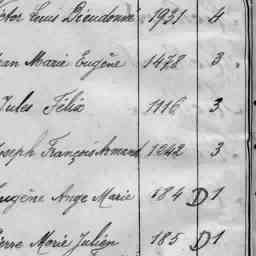 ctor Louis Dieudonné 1931 4
ean Marie Eugène 1478 3
Jules Félix 1116 3
oseph François Armand 1242 3
Eugène Ange Marie 184 D 1
ierre Marie Julien 185 D 1